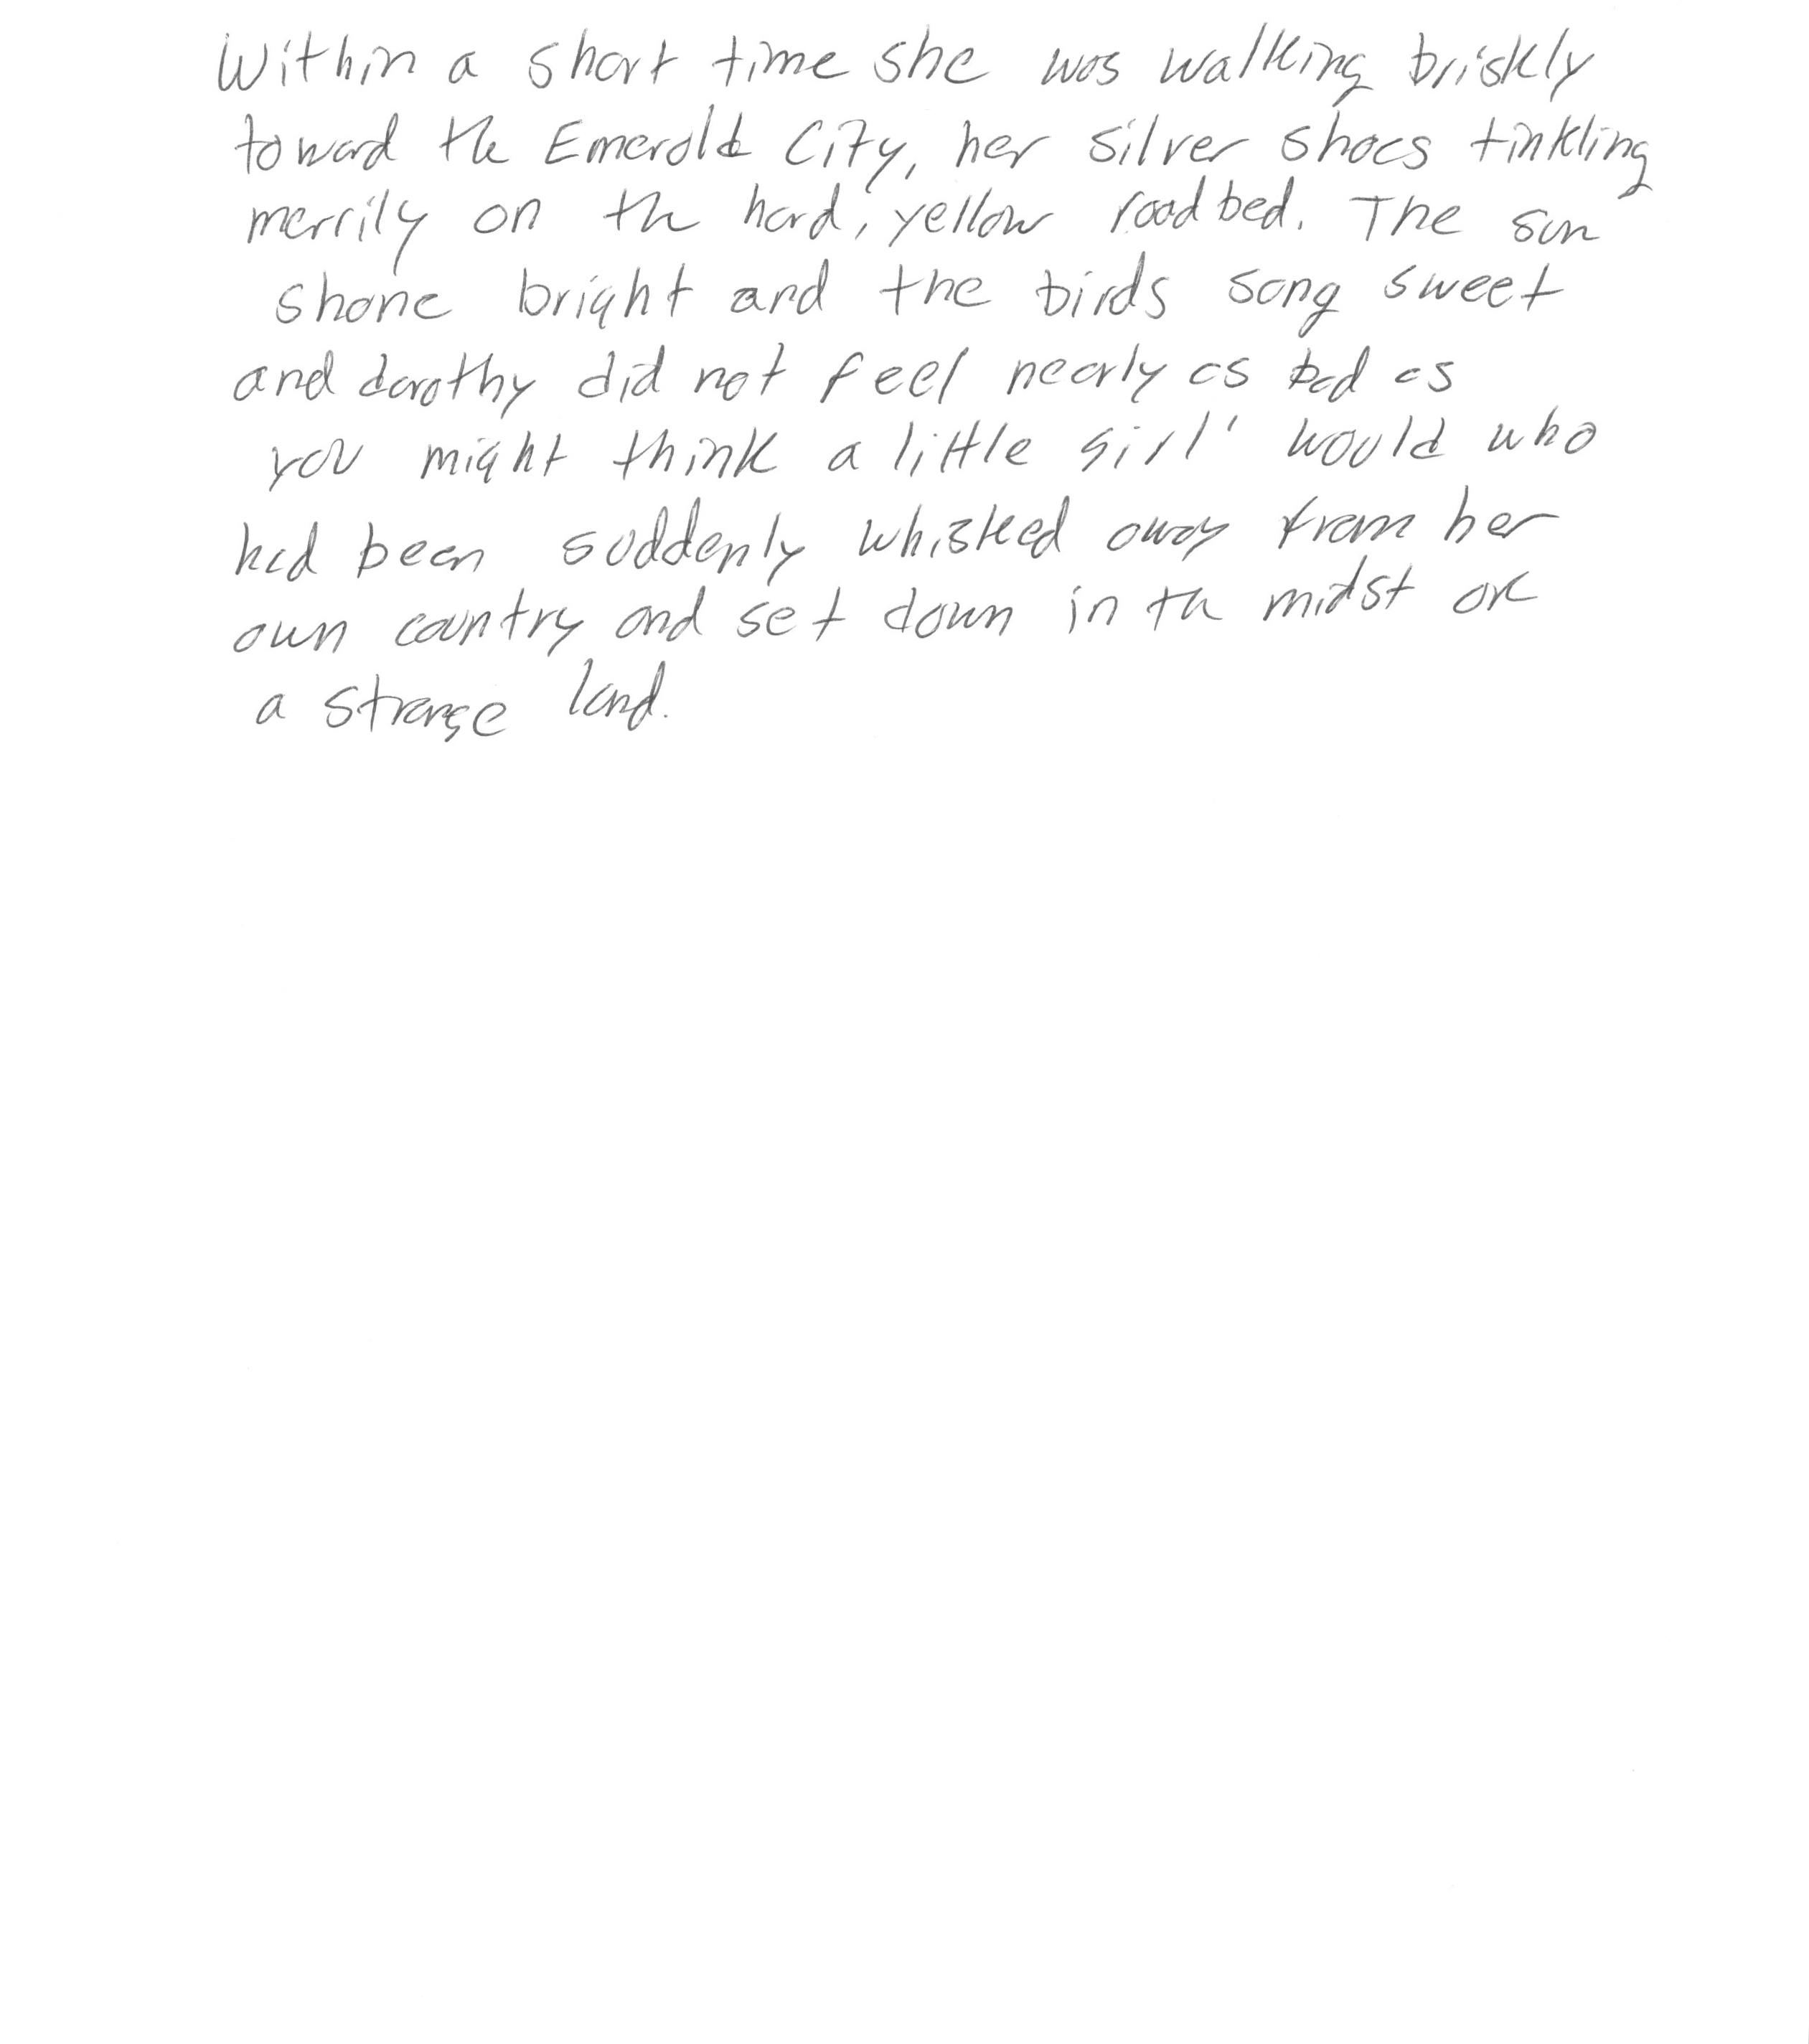 Within a short time she was walking briskly
toward the Emerald City, her silver shoes tinkling
merrily on the hard, yellow roadbed. The sun
shone bright and the birds sang sweet
and dorothy did not feel nearly as bad as
you might think a little girl' would who
had been suddenly whisked away from her
own country and set down in the midst of
a strange land.